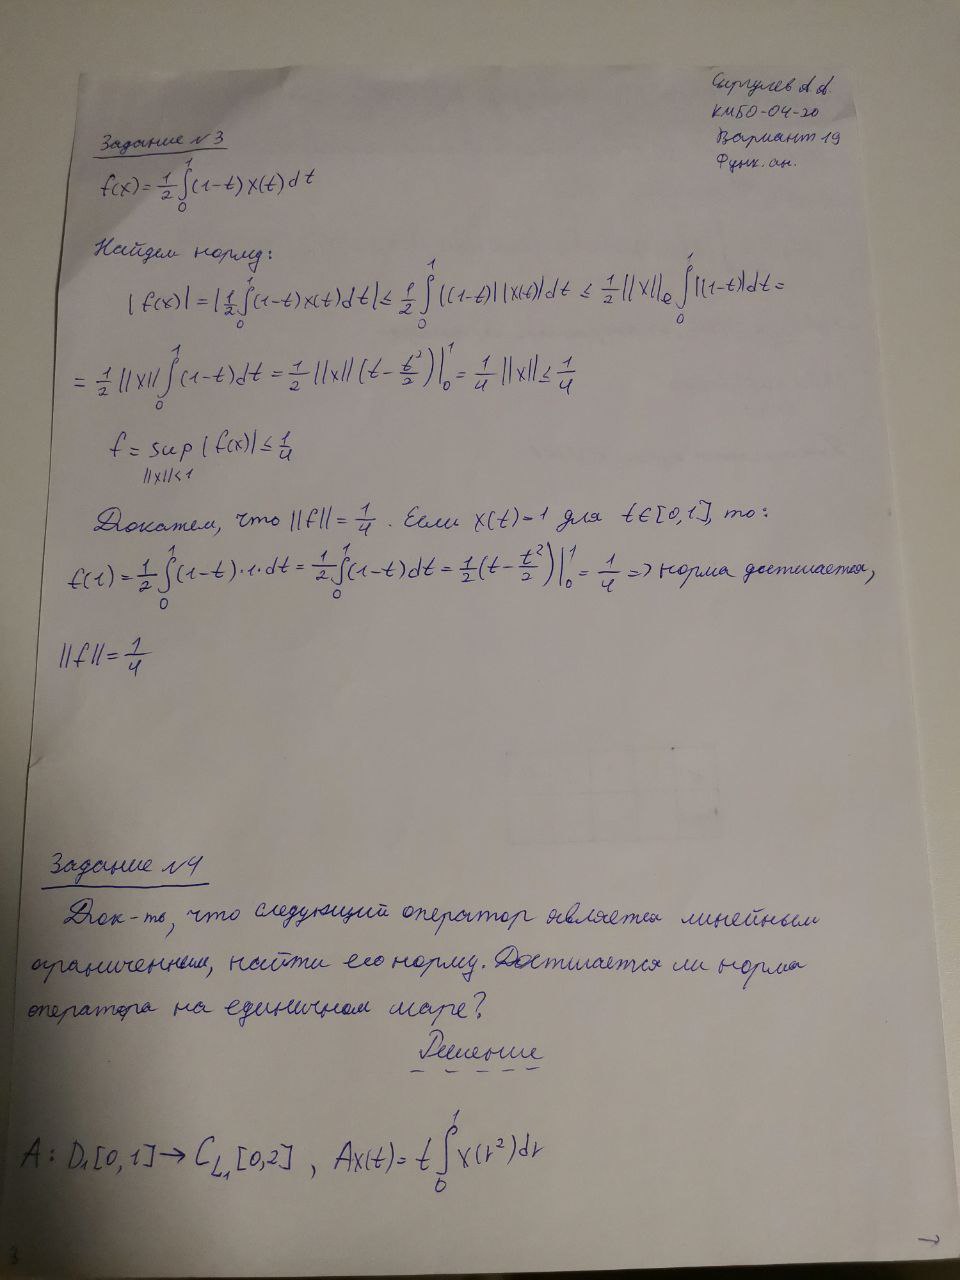 А.А.
КМБО-04-20
Вариант 19
Функ. ан.
Задание №3
f(x) = 1/2 ∫₀¹ (1-t) x(t) dt
Найдем норму:
|f(x)| = |1/2 ∫₀¹ (1-t)x(t)dt| ≤ 1/2 ∫₀¹ |(1-t)||x(t)|dt ≤ 1/2 ||x||_e ∫₀¹ |(1-t)|dt =
= 1/2 ||x|| ∫₀¹ (1-t)dt = 1/2 ||x|| (t - t²/2)|₀¹ = 1/4 ||x|| ≤ 1/4
f = sup_{||x||<1} |f(x)| ≤ 1/4
Докажем, что ||f|| = 1/4. Если x(t)=1 для t∈[0,1], то:
f(1) = 1/2 ∫₀¹ (1-t)·1·dt = 1/2 ∫₀¹ (1-t)dt = 1/2 (t - t²/2)|₀¹ = 1/4 => норма достигается,
||f|| = 1/4
Задание №4
Док-ть, что следующий оператор является линейным
ограниченным, найти его норму. Достигается ли норма
оператора на единичном шаре?
Решение
A: D₁[0,1] → C_{L₁}[0,2], Ax(t) = t ∫₀¹ x(r²)dr